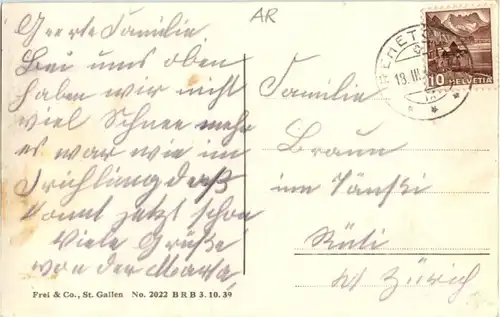 AR
Geerte Familie.
Bei uns oben
haben wir nicht
viel Schnee mehr
es war wie im
Frichling daß
komt jetzt schon
Viele Grüße
von der Marta,
Familie
Braun
im
Rüti
Kt Zürich
10 HELVETIA
19.III.
Frei & Co., St. Gallen No. 2022 BRB 3.10.39